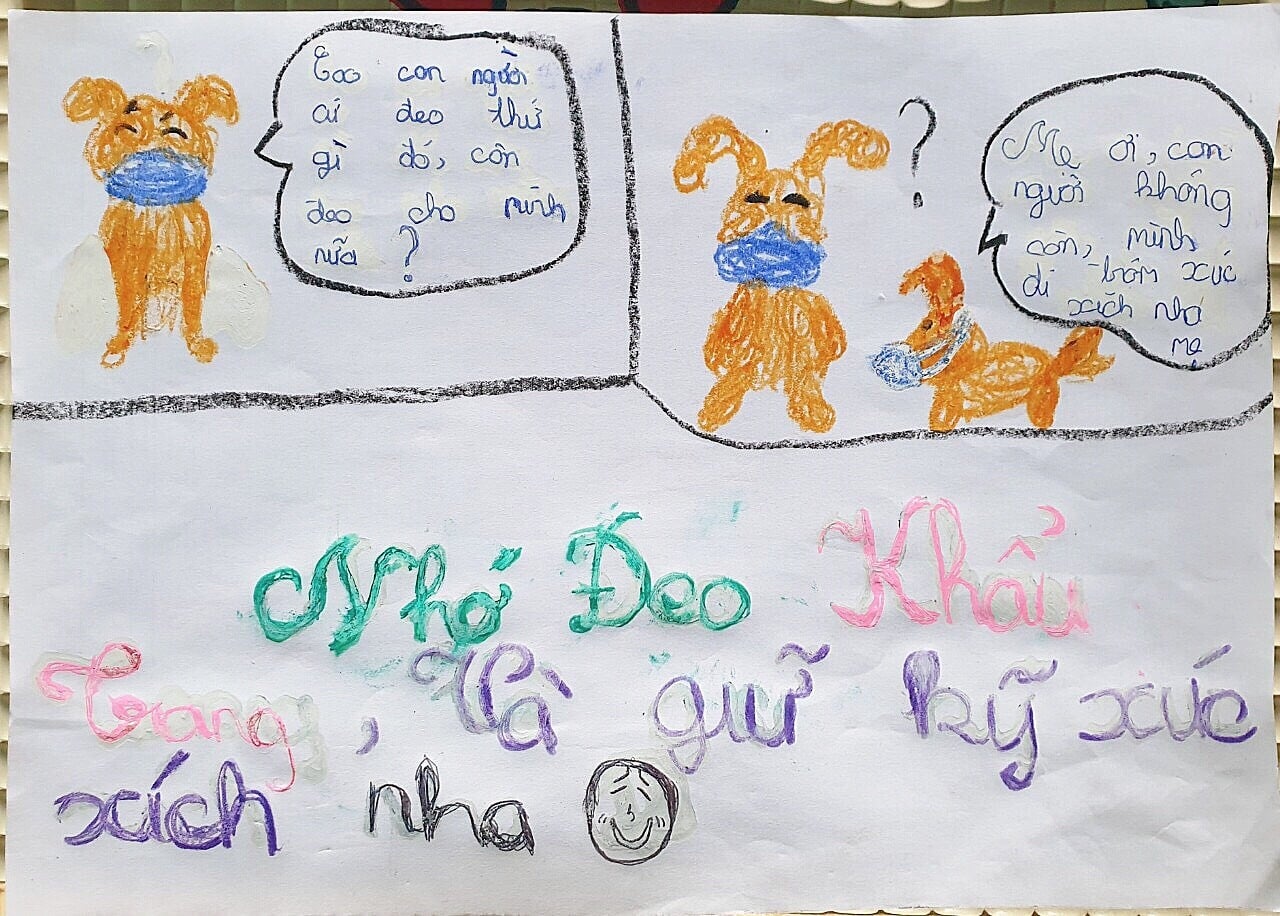 Sao con người
ai đeo thứ
gì đó, còn
đeo cho mình
nữa ?
?
Mẹ ơi, con
người không
còn, mình
đi trộm xúc
xích nha
mẹ
Nhớ Đeo Khẩu
Trang, Và giữ kỹ xúc
xích nha